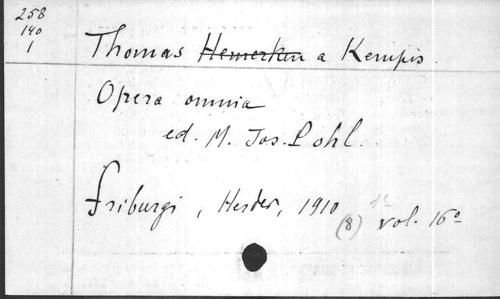 258
140
1
Thomas Hemerken a Kempis.
Opera omnia
ed. M. Jos. Pohl.
Friburgi, Herder, 1910
(8) vol. 16°